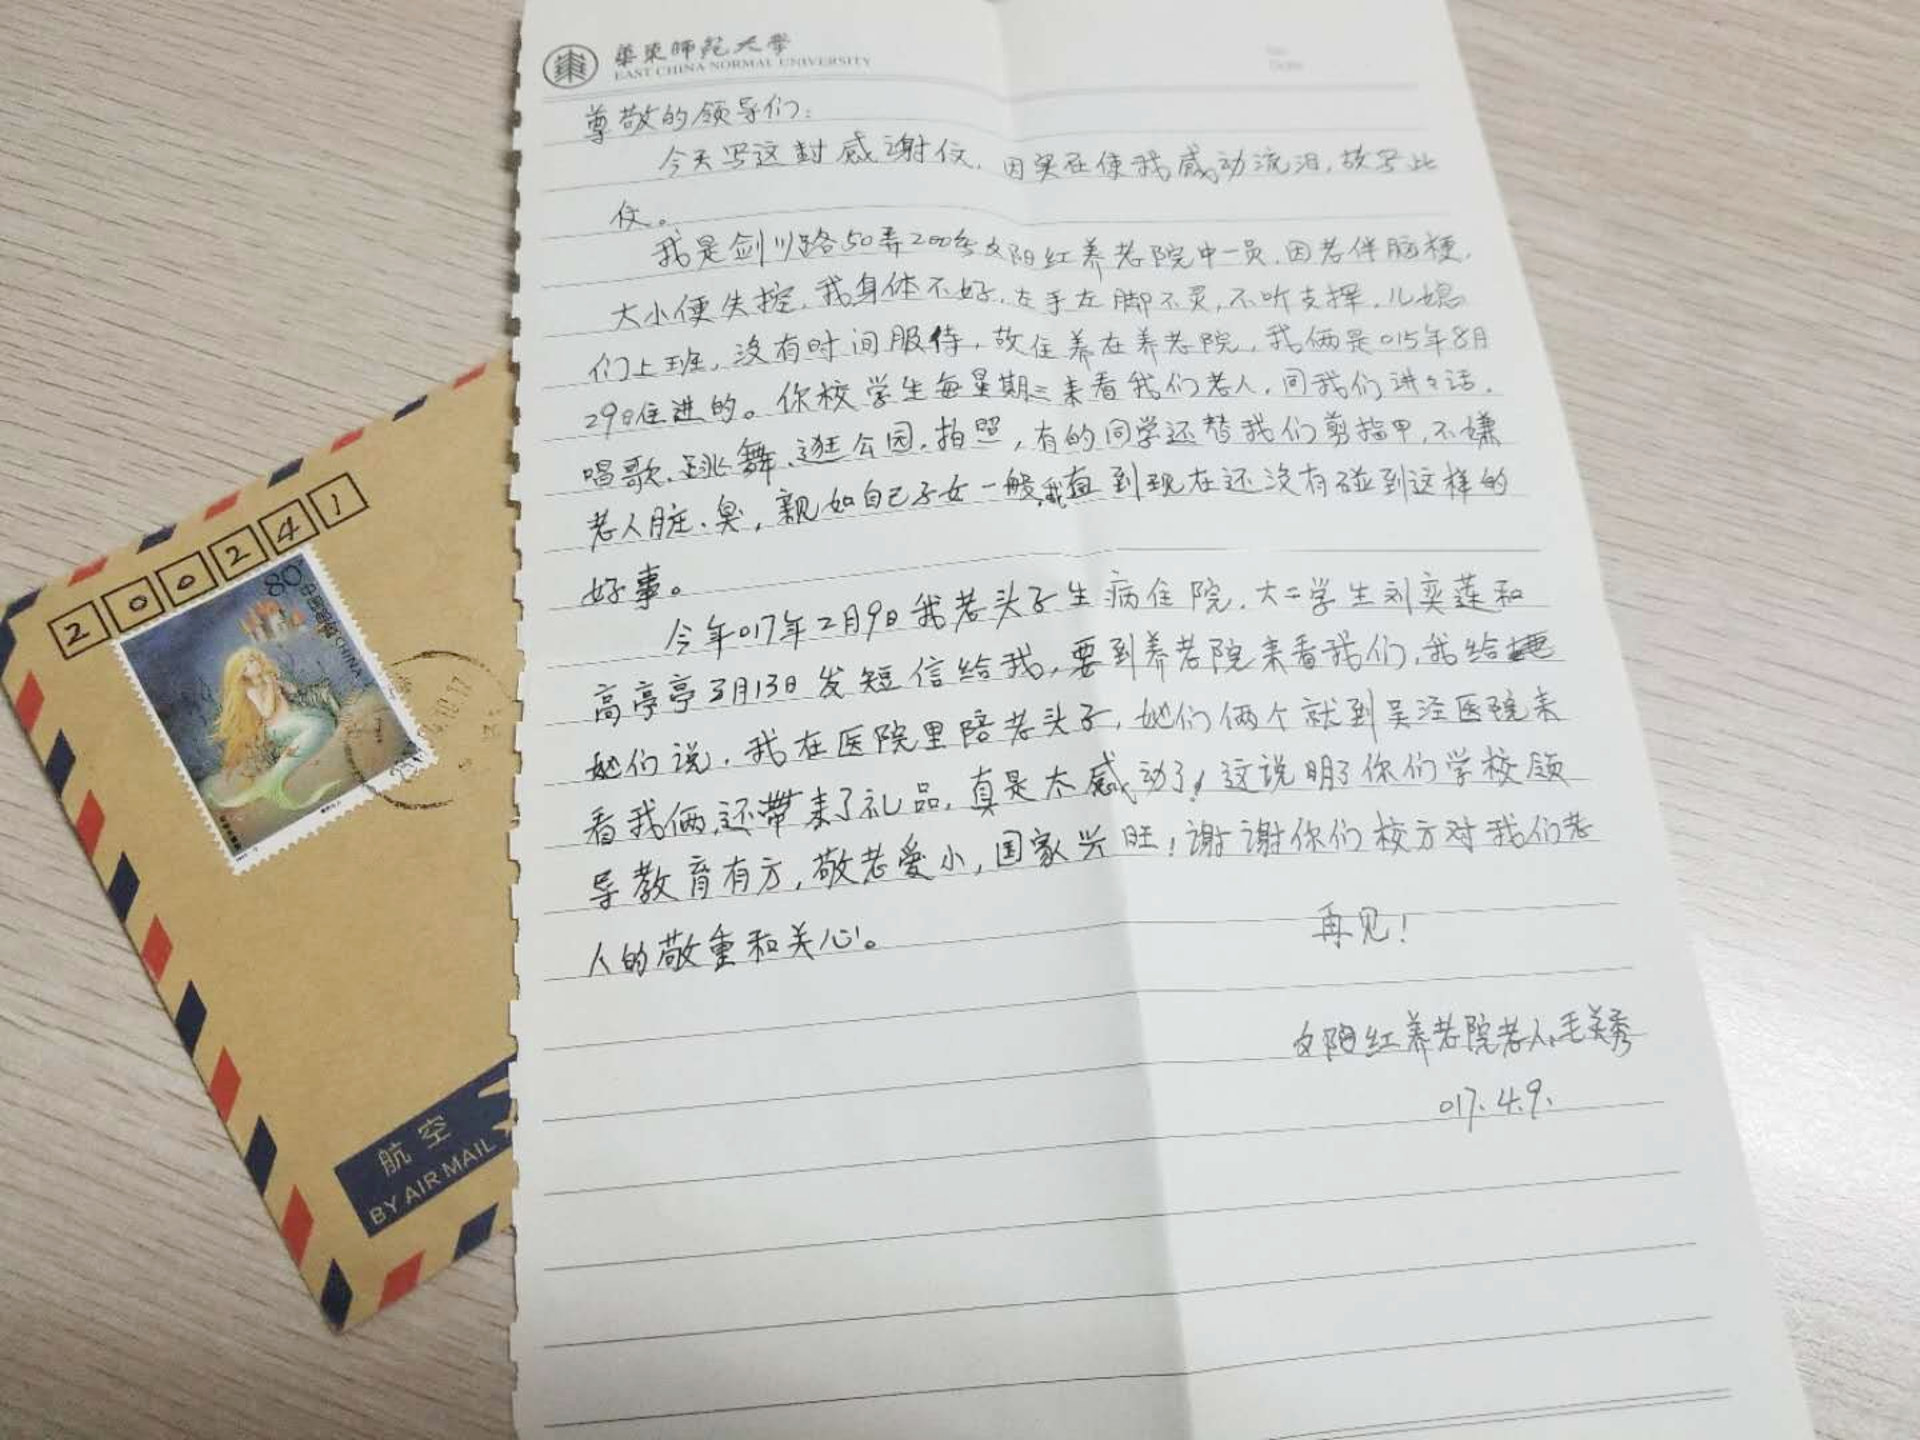 華東師范大學
EAST CHINA NORMAL UNIVERSITY
尊敬的领导们:
今天写这封感谢仪,因实在使我感动流泪,故写此
仪。
我是剑川路50弄200号夕阳红养老院中一员,因老伴脑梗,
大小便失控,我身体不好,左手左脚不灵,不听支挥,儿媳
们上班,没有时间服侍,故住养在养老院,我俩是015年8月
29日住进的。你校学生每星期三来看我们老人,同我们讲讲话,
唱歌、跳舞、逛公园、拍照,有的同学还替我们剪指甲,不嫌
老人脏、臭,亲如自己子女一般,我直到现在还没有碰到这样的
好事。
今年017年2月9日我老头子生病住院,大二学生刘奕莲和
高亭亭3月13日发短信给我,要到养老院来看我们,我给
她们说,我在医院里陪老头子,她们俩个就到吴泾医院来
看我俩,还带来了礼品,真是太感动了!这说明了你们学校领
导教育有方,敬老爱小,国家兴旺!谢谢你们校方对我们老
人的敬重和关心。
再见!
夕阳红养老院老人毛美秀
017.4.9.
200241
80
中国邮政 CHINA
航空
BY AIR MAIL